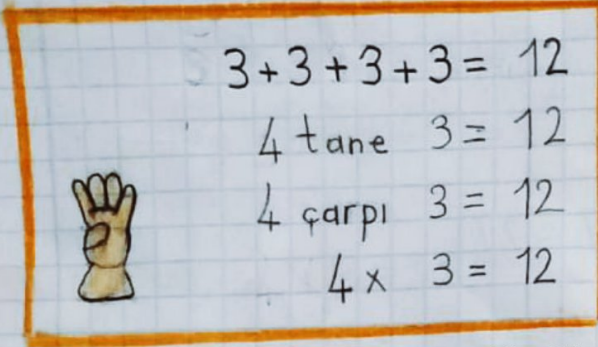 3+3+3+3= 12
4 tane 3= 12
4 çarpı 3= 12
4 x 3= 12